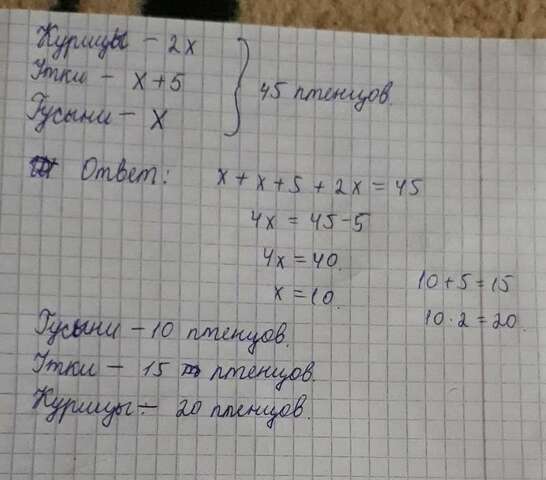 Курицы – 2x
Утки – x + 5
Гусыни – x
45 птенцов.
Ответ: x + x + 5 + 2x = 45
4x = 45 - 5
4x = 40.
x = 10.
10 + 5 = 15
10 · 2 = 20.
Гусыни – 10 птенцов.
Утки – 15 птенцов.
Курицы – 20 птенцов.